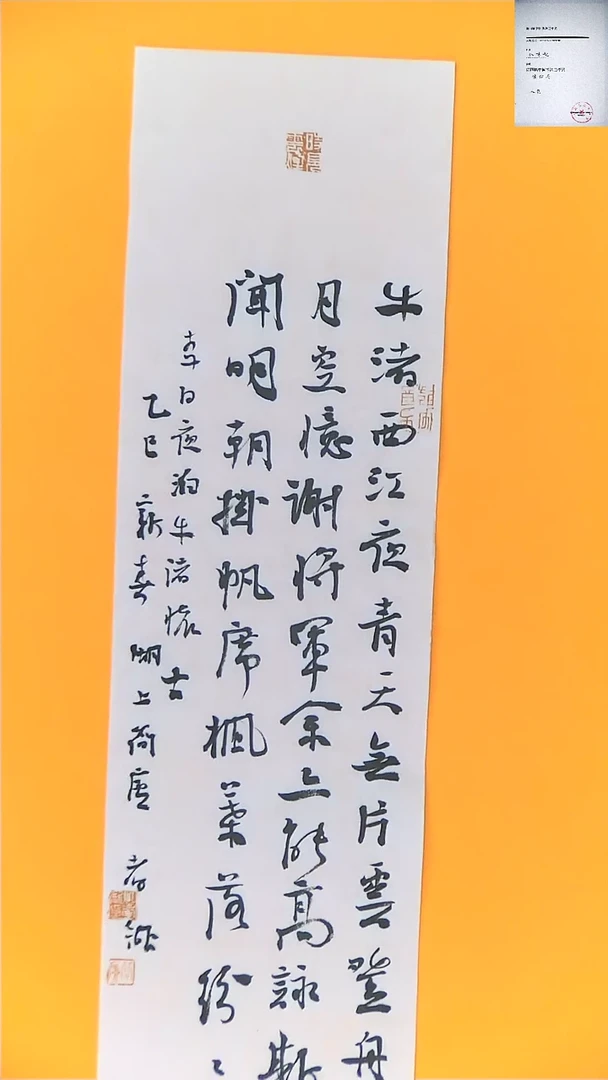 牛渚西江夜青天無片雲登舟
月空憶謝將軍余亦能高詠斯
聞明朝掛帆席楓葉落紛〻
李白夜泊牛渚懷古
乙巳新春湖上